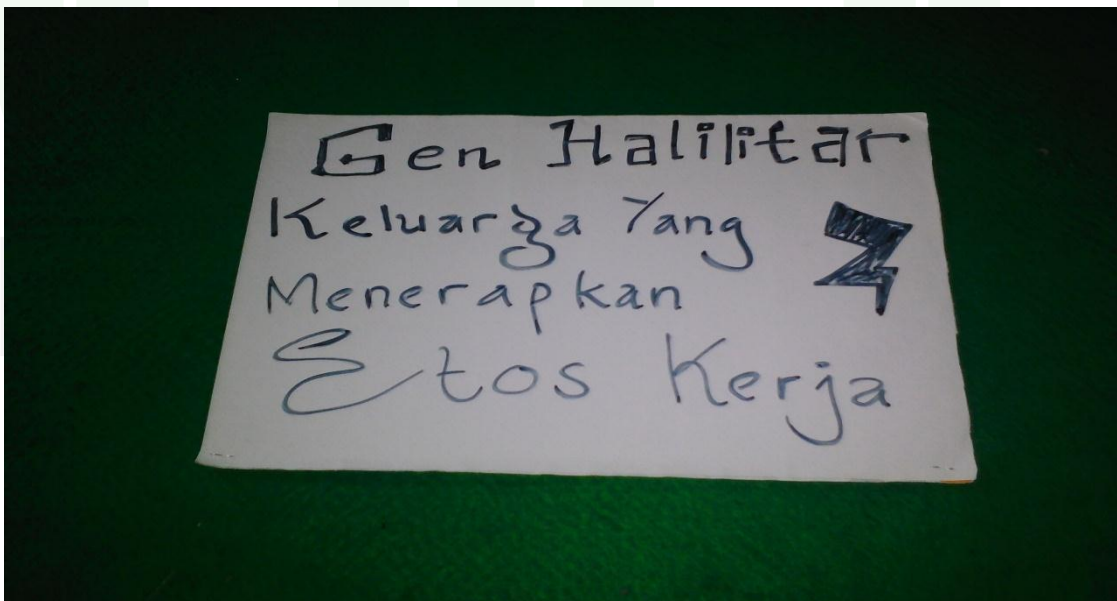 Gen Halilitar
Keluarga Yang
Menerapkan
Etos Kerja